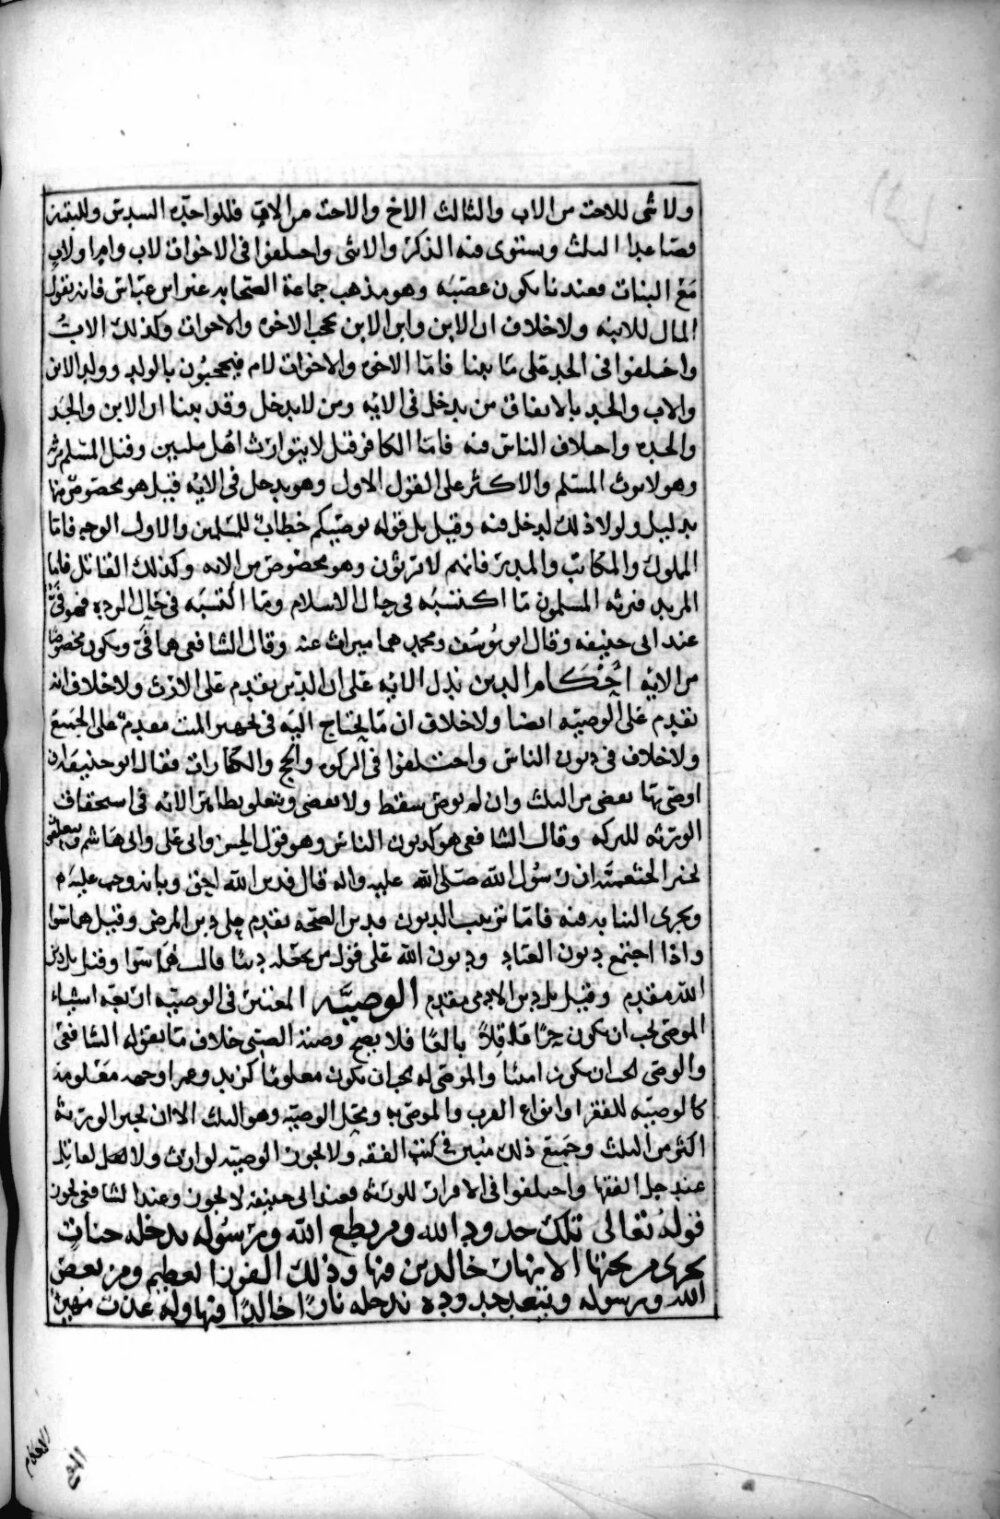 ولا شى للاخت من الاب والثالث الاخ والاخت من الام فللواحد السدس وللاثنين
فصاعدا الثلث ويستوى فيه الذكر والانثى واختلفوا فى الاخوات لاب وام او لاب
مع البنات فعندنا يكون عصبه وهو مذهب جماعة الصحابه غير ابن عباس فانه يقول
المال للابنه ولا خلاف ان الابن وابن الابن يحجب الاخوه والاخوات وكذلك الاب
واختلفوا فى الجد على ما بينا فاما الاخوه والاخوات لام فيحجبون بالولد وولد الابن
والاب والجد بالاتفاق من يدخل فى الايه ومن لا يدخل وقد بينا ان الابن والجد
والجده واختلاف الناس فيه فاما الكافر قيل لا يتوارث اهل ملتين وقيل المسلم يرثه
وهو لا يرث المسلم والاكثر على القول الاول وهو يدخل فى الايه قيل هو مخصوص منها
بدليل ولولا ذلك لدخل فيه وقيل بل قوله يوصيكم خطاب للمسلمين والاول الوجه فاما
المملوك والمكاتب والمدبر فانهم لا يرثون وهو مخصوص من الايه وكذلك القاتل فاما
المرتد فيرثه المسلمون ما اكتسبه فى حال الاسلام وما اكتسبه فى حال الرده فهو فئ
عند ابى حنيفه وقال ابو يوسف ومحمد هما ميراث عنه وقال الشافعى هما فئ ويكون مخصوصا
من الايه احكام الدين تدل الايه على ان الدين يقدم على الارث ولا خلاف انه
يقدم على الوصيه ايضا ولا خلاف ان ما يحتاج اليه فى تجهيز الميت مقدم على الجميع
ولا خلاف فى ديون الناس واختلفوا فى الزكوه والحج والكفارات فقال ابو حنيفه ان
اوصى بها بعضى من الثلث وان لم يوص سقط ولا يقضى ويتعلق بظاهر الايه فى استحقاق
الورثه للتركه وقال الشافعى هو كديون الناس وهو قول الحسن وابى على وابى هاشم ويتعلق
بخبر الخثعميه ان رسول الله صلى الله عليه واله قال فدين الله احق وبانه وجب عليه
ويجرى النيابه فيه فاما ترتيب الديون فدين الصحه يقدم على دين المرض وقيل هما سوا
واذا اجتمع ديون العباد وديون الله على قول من يجعله دينا قال هما سوا وقيل بل دين
الله مقدم وقيل بل دين الادمى مقدم الوصيه المعتبر فى الوصيه اربعه اشياء
الموصى يجب ان يكون حرا عاقلا بالغا فلا يصح وصية الصبى خلاف ما يقوله الشافعى
والوصى يجب ان يكون امينا والموصى له يجب ان يكون معلوما كزيد وعمر او جهه معلومه
كالوصيه للفقرا وانواع القرب والموصى به ومحل الوصيه وهو الثلث الا ان يجيز الورثه
اكثر من الثلث وجميع ذلك مبين فى كتب الفقه ولا يجوز الوصيه لوارث ولا لقاتل
عند جل الفقها واختلفوا فى الاقرار للورثه فعند ابى حنيفه لا يجوز وعند الشافعى يجوز
قوله تعالى تلك حدود الله ومن يطع الله ورسوله يدخله جنات
تجرى من تحتها الانهار خالدين فيها وذلك الفوز العظيم ومن يعص
الله ورسوله ويتعد حدوده يدخله نارا خالدا فيها وله عذاب مهين